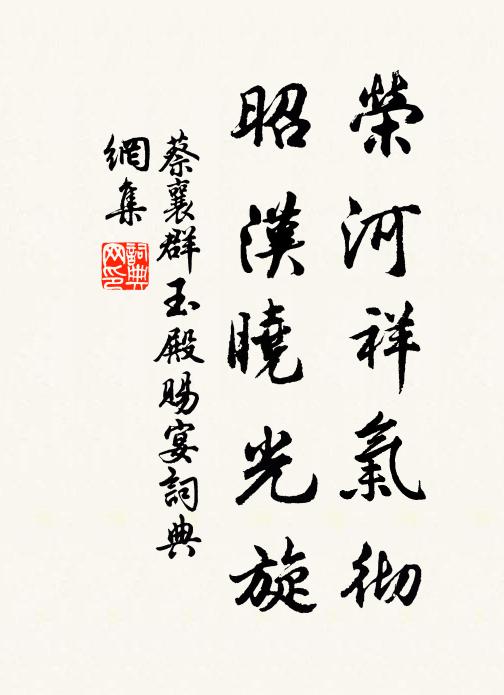 榮河祥氣彻
昭漢曉光旋
蔡襄群玉殿賜宴詞典
網集
詞典
网印